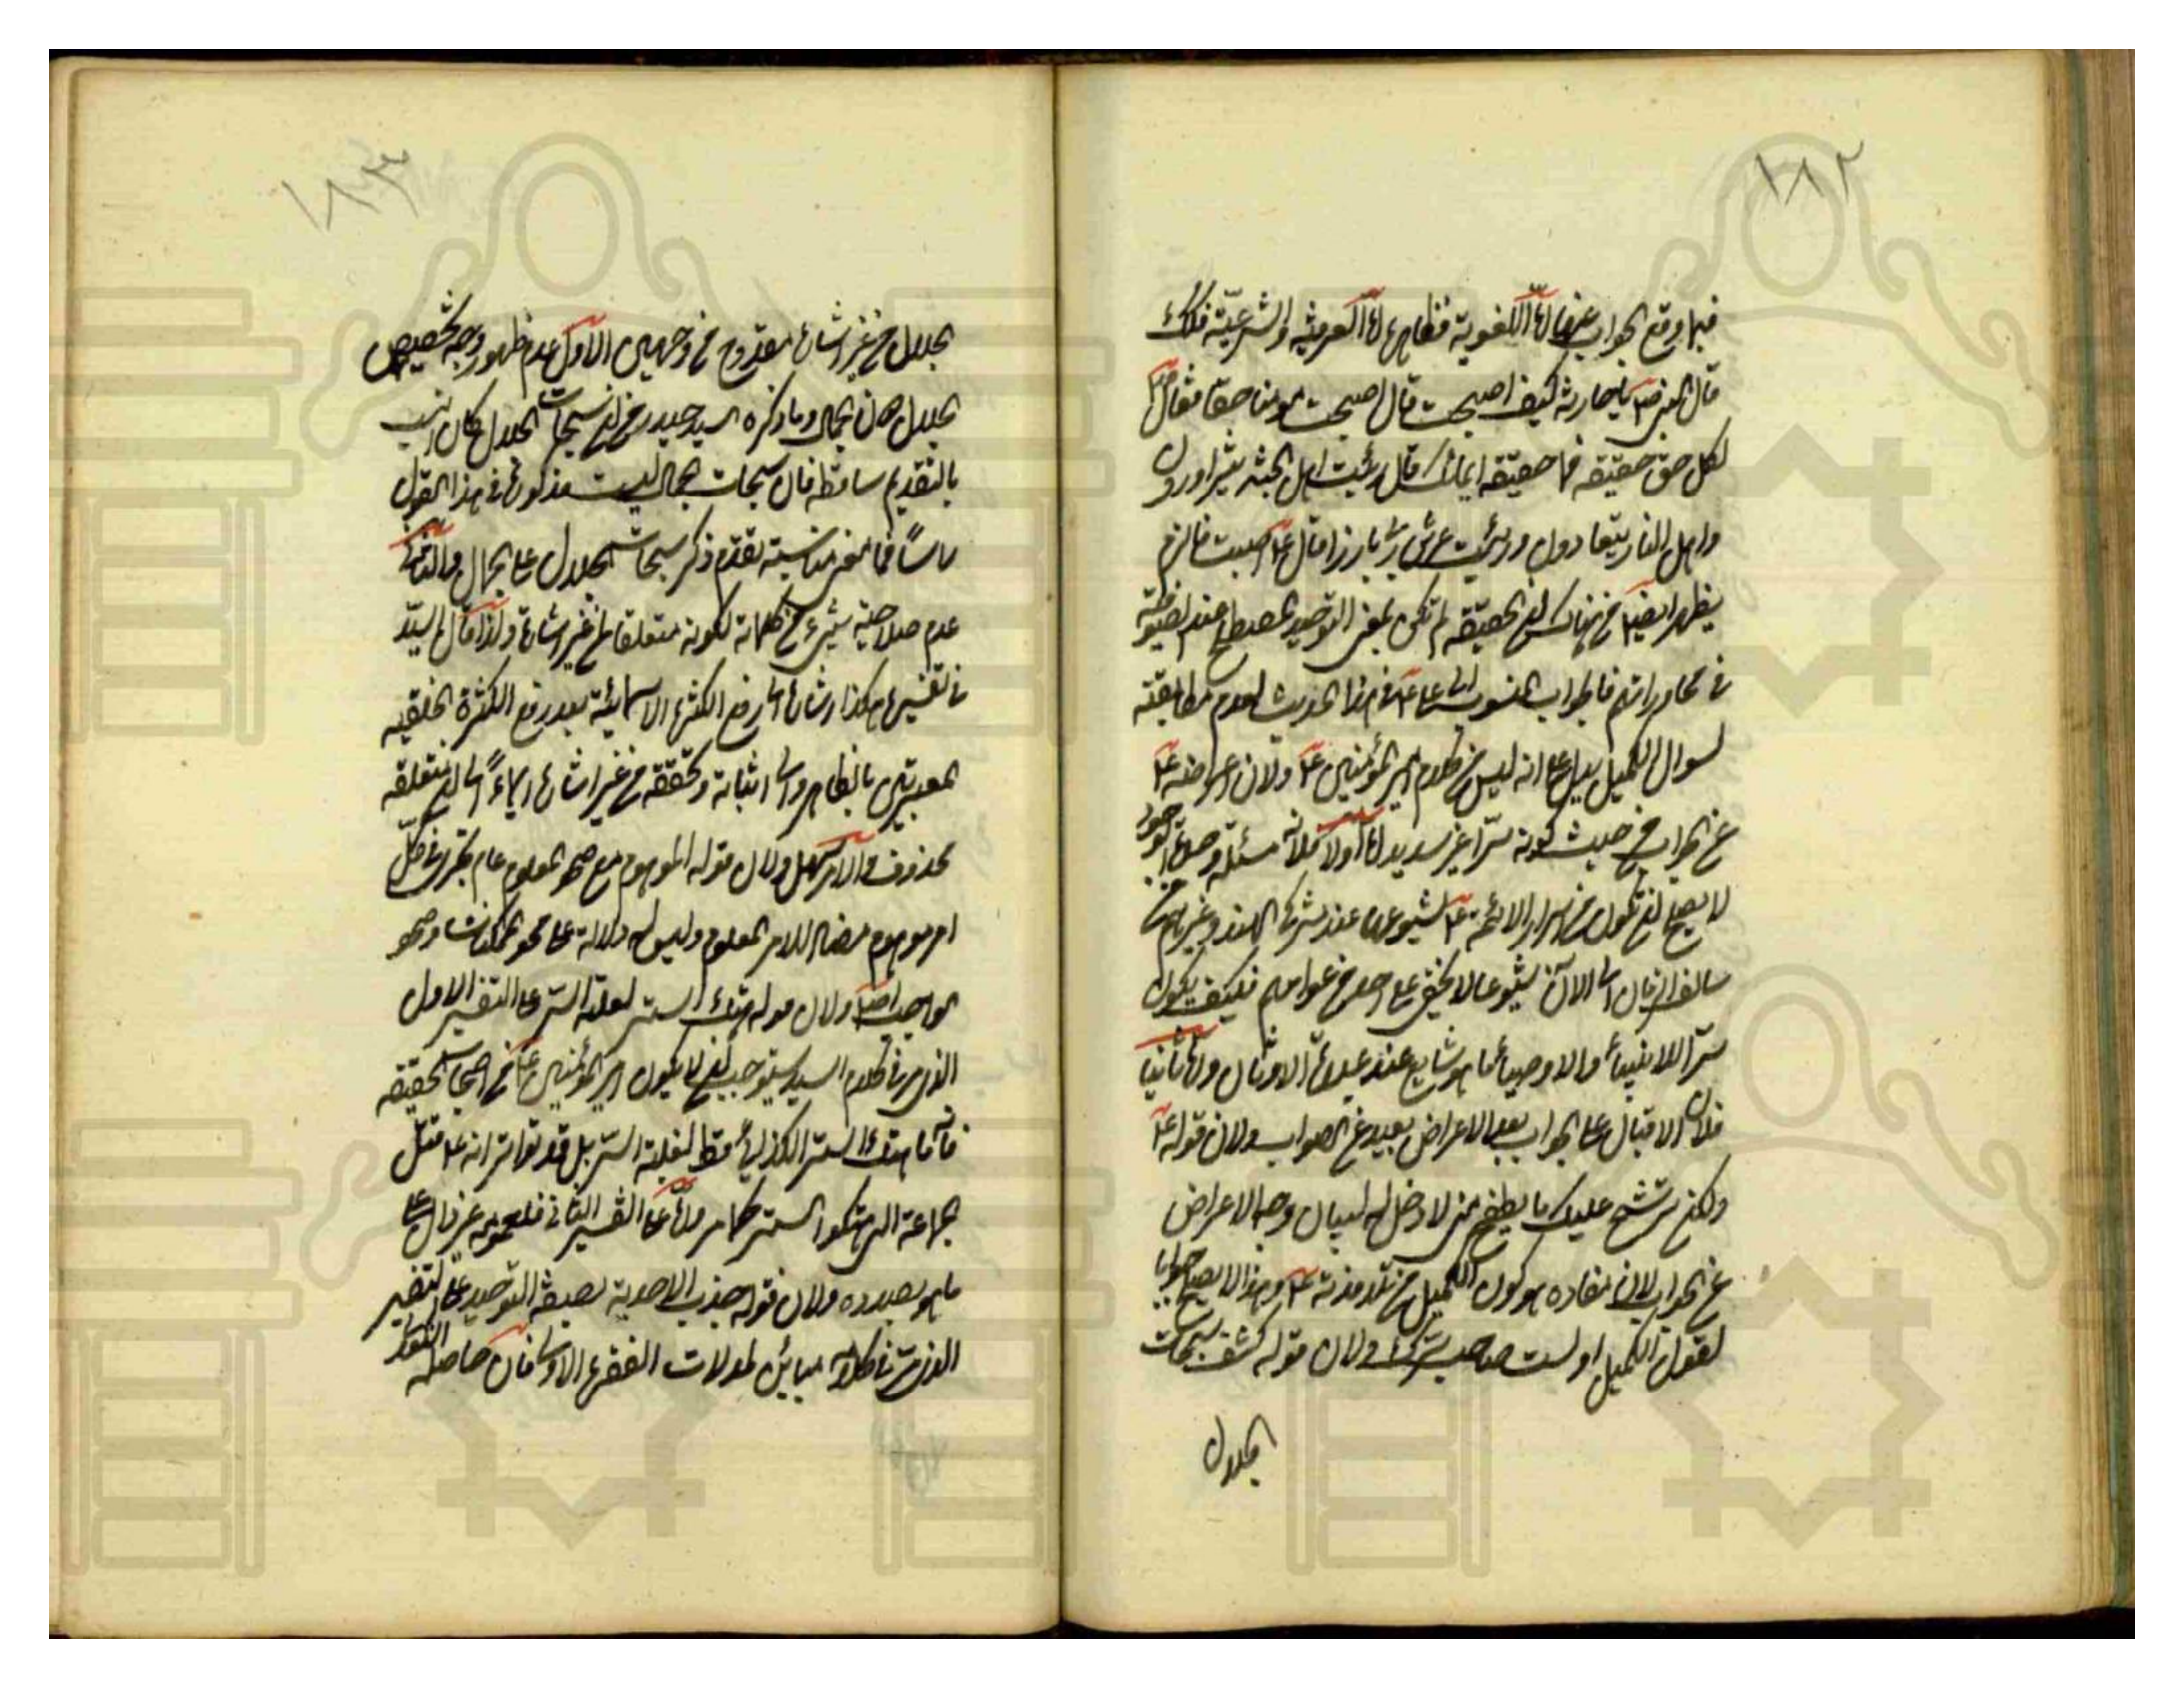 ١٨٢
فيما وقع الجواب عنها اما اللغوية فظاهرة واما العرفية والشرعية فلانه
قال النبي ص يا حارثة كيف اصبحت قال اصبحت مومنا حقا فقال ص
لكل حق حقيقة فما حقيقة ايمانك قال رئيت اهل الجنة يتزاورون
واهل النار يتعادون ورئيت عرش ربي بارزا قال ع اصبت فالزم
يظهر ايضا من هنا ان الحقيقة لم تكن بمعنى التوحيد المصطلح عند الصوفية
في محاوراتهم فالجواب المنسوب الى علي ع في هذا الحديث لعدم مطابقته
لسوال الكميل يدل على انه ليس من كلام امير المؤمنين ع ولان اعراضه ع
عن الجواب من حيث كونه سرا غير سديد اما اولا فلانه مسئلة وحدة الوجود
لا يصح ان تكون من اسرار الائمة ع لشيوعها عند مشركي الهند وغيرهم من
سالف الزمان الى الآن شيوعا لا يخفى على احد من عوامهم فكيف يكون
سر الانبياء والاوصياء ما هو شايع عند عبدة الاوثان واما ثانيا
فلان الاقبال على الجواب بعد الاعراض بعيد عن الصواب ولان قوله ع
ولكن يترشح عليك ما يطفح مني لا دخل له لبيان وجه الاعراض
عن الجواب لان مفاده هو كون الكميل من تلامذته ع وهذا لا يصح جوابا
لقول الكميل اولست صاحب سرك ولان قوله كشف سبحات
الجلال
١٨٣
الجلال من غير اشارة مقدوح من وجهين الاول عدم ظهور وجه تخصيص
الجلال دون الجمال وما ذكره السيد حيدر من ان سبحات الجلال كان انسب
بالتقديم ساقط فان سبحات الجمال ليست مذكورة في هذا القول
راسا فما معنى مناسبة تقدم ذكر سبحات الجلال على الجمال والثاني
عدم صلاحية شيء من كلماته لكونه متعلقا لمن غير اشارة ولذا قال السيد
في تفسيره هكذا اشارة الى رفع الكثرة الاسمائية بعد رفع الكثرة الخلقية
المعبرتين بالظاهر والى اثباته وتحققه من غير اشارة ايماء الى ان متعلقه
محذوف والامر سهل ولان قوله الموهوم مع صحو المعلوم عام يجري في كل
امر موهوم مضاد للامر المعلوم وليس له دلالة على محو الممكنات وصحو
الواجب اصلا ولان قوله هتك الستر لغلبة السر على التفسير الاول
الذي مر في كلام السيد يستوجب ان لا يكون امير المؤمنين ع من اصحاب الحقيقة
فانه ما هتك الستر الكذائي قط لغلبة السر بل قد تواتر انه ع قتل
جماعة الذين هتكوا الستر كما مر واما على التفسير الثاني فلعمومه غير دال على
ما هو بصدده ولان قوله جذب الاحدية لصفة التوحيد على التفسير
الذي مر في كلامه مباين لمدلولات الفقرة الاولى فان حاصله